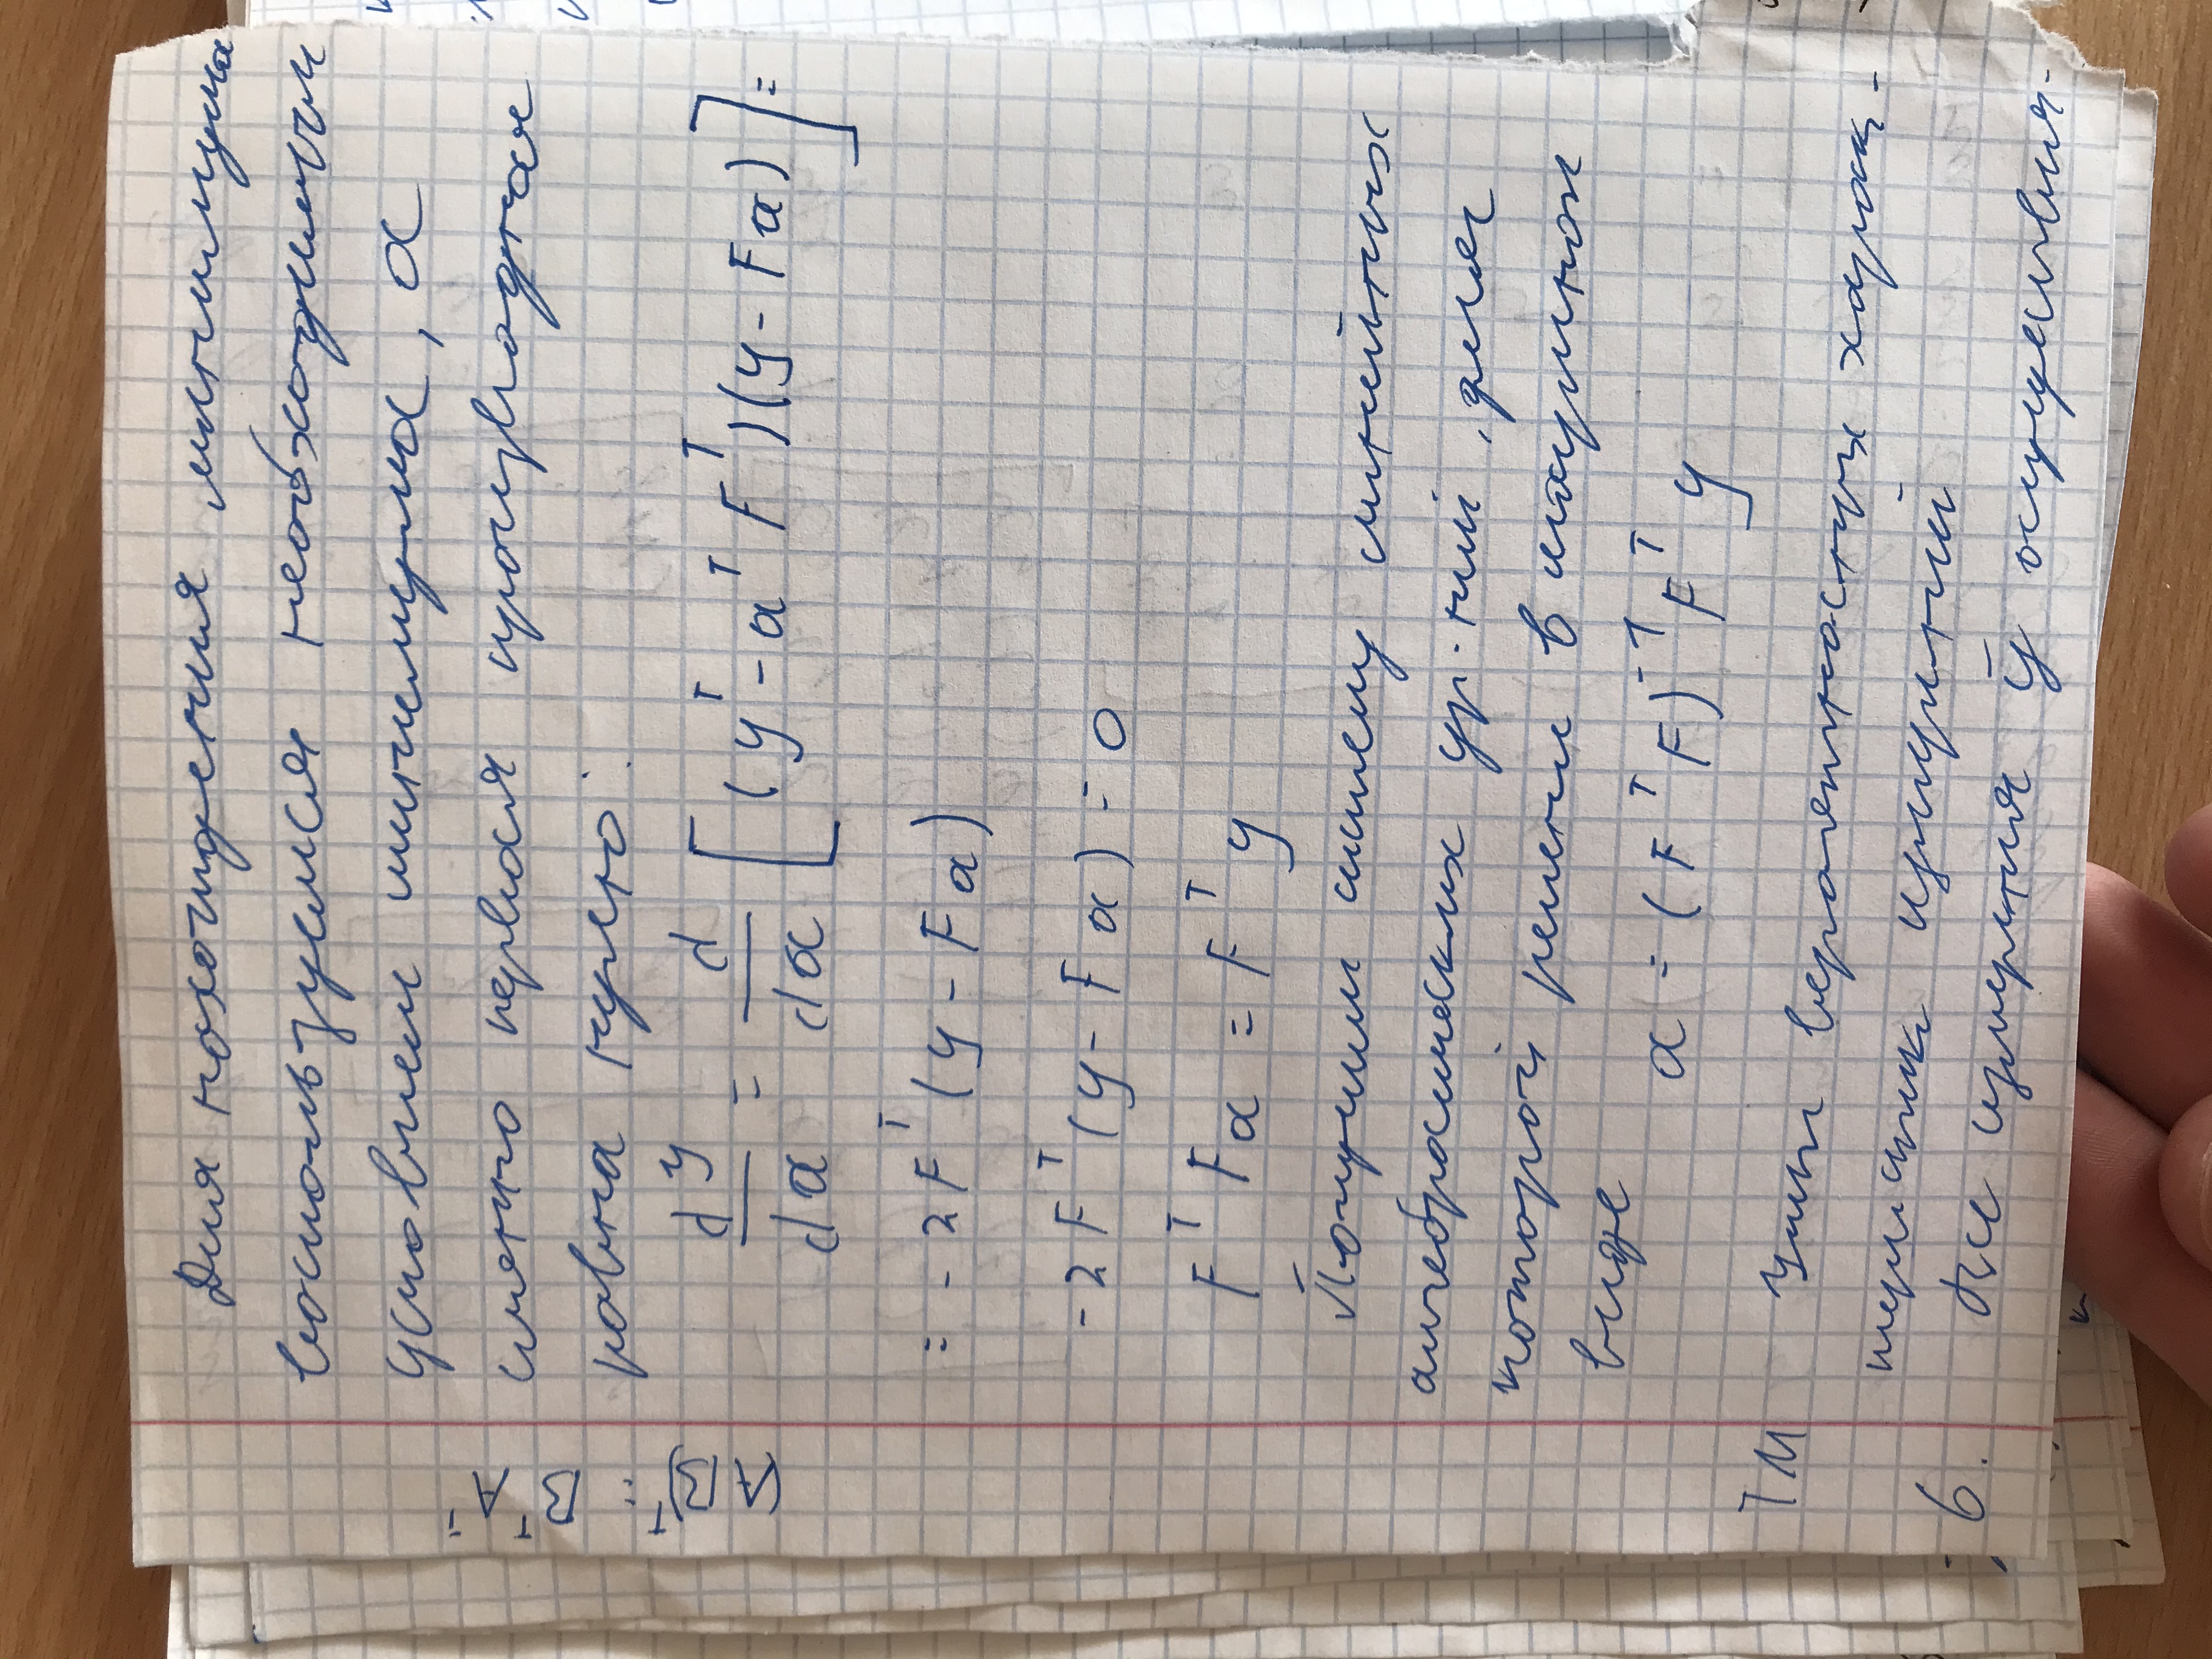 Для нахождения минимума
воспользуемся необходимым
условием минимума, а
именно первая производная
равна нулю:
(AB)ᵀ = BᵀAᵀ
dy/da = d/da [(yᵀ - aᵀFᵀ)(y - Fa)] =
= -2Fᵀ(y - Fa)
-2Fᵀ(y - Fa) = 0
FᵀFa = Fᵀy
Получим систему линейных
алгебраических ур-ний, для
которой решение в матричном
виде
a = (FᵀF)⁻¹Fᵀy
ТМ Учёт вероятностных харак-
теристик измерений
6. Все измерения ȳ осуществля-